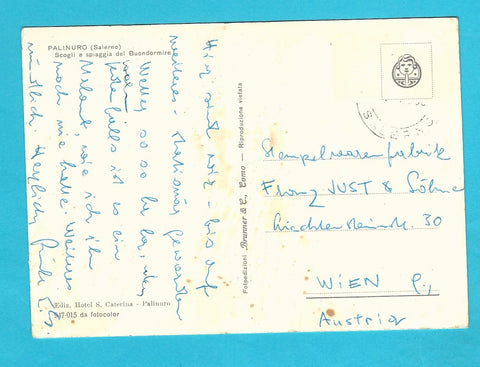 PALINURO (Salerno)
Scogli e spiaggia del Buondormire
Hier sind wir - bis auf
weiteres - stationär geworden
Wetter so so la la, der
jedenfalls ist es ein
Urlaub, wie ich ihn
noch nie hatte. Weiteres
mündlich. Herzlich
Ediz. Hotel S. Caterina - Palinuro
947-015 da fotocolor
Fotpedizioni Brunner & C., Como — Riproduzione vietata
Stempelwarenfabrik
Franz JUST & Söhne
Liechtensteinstr. 30
WIEN 9.,
Austria